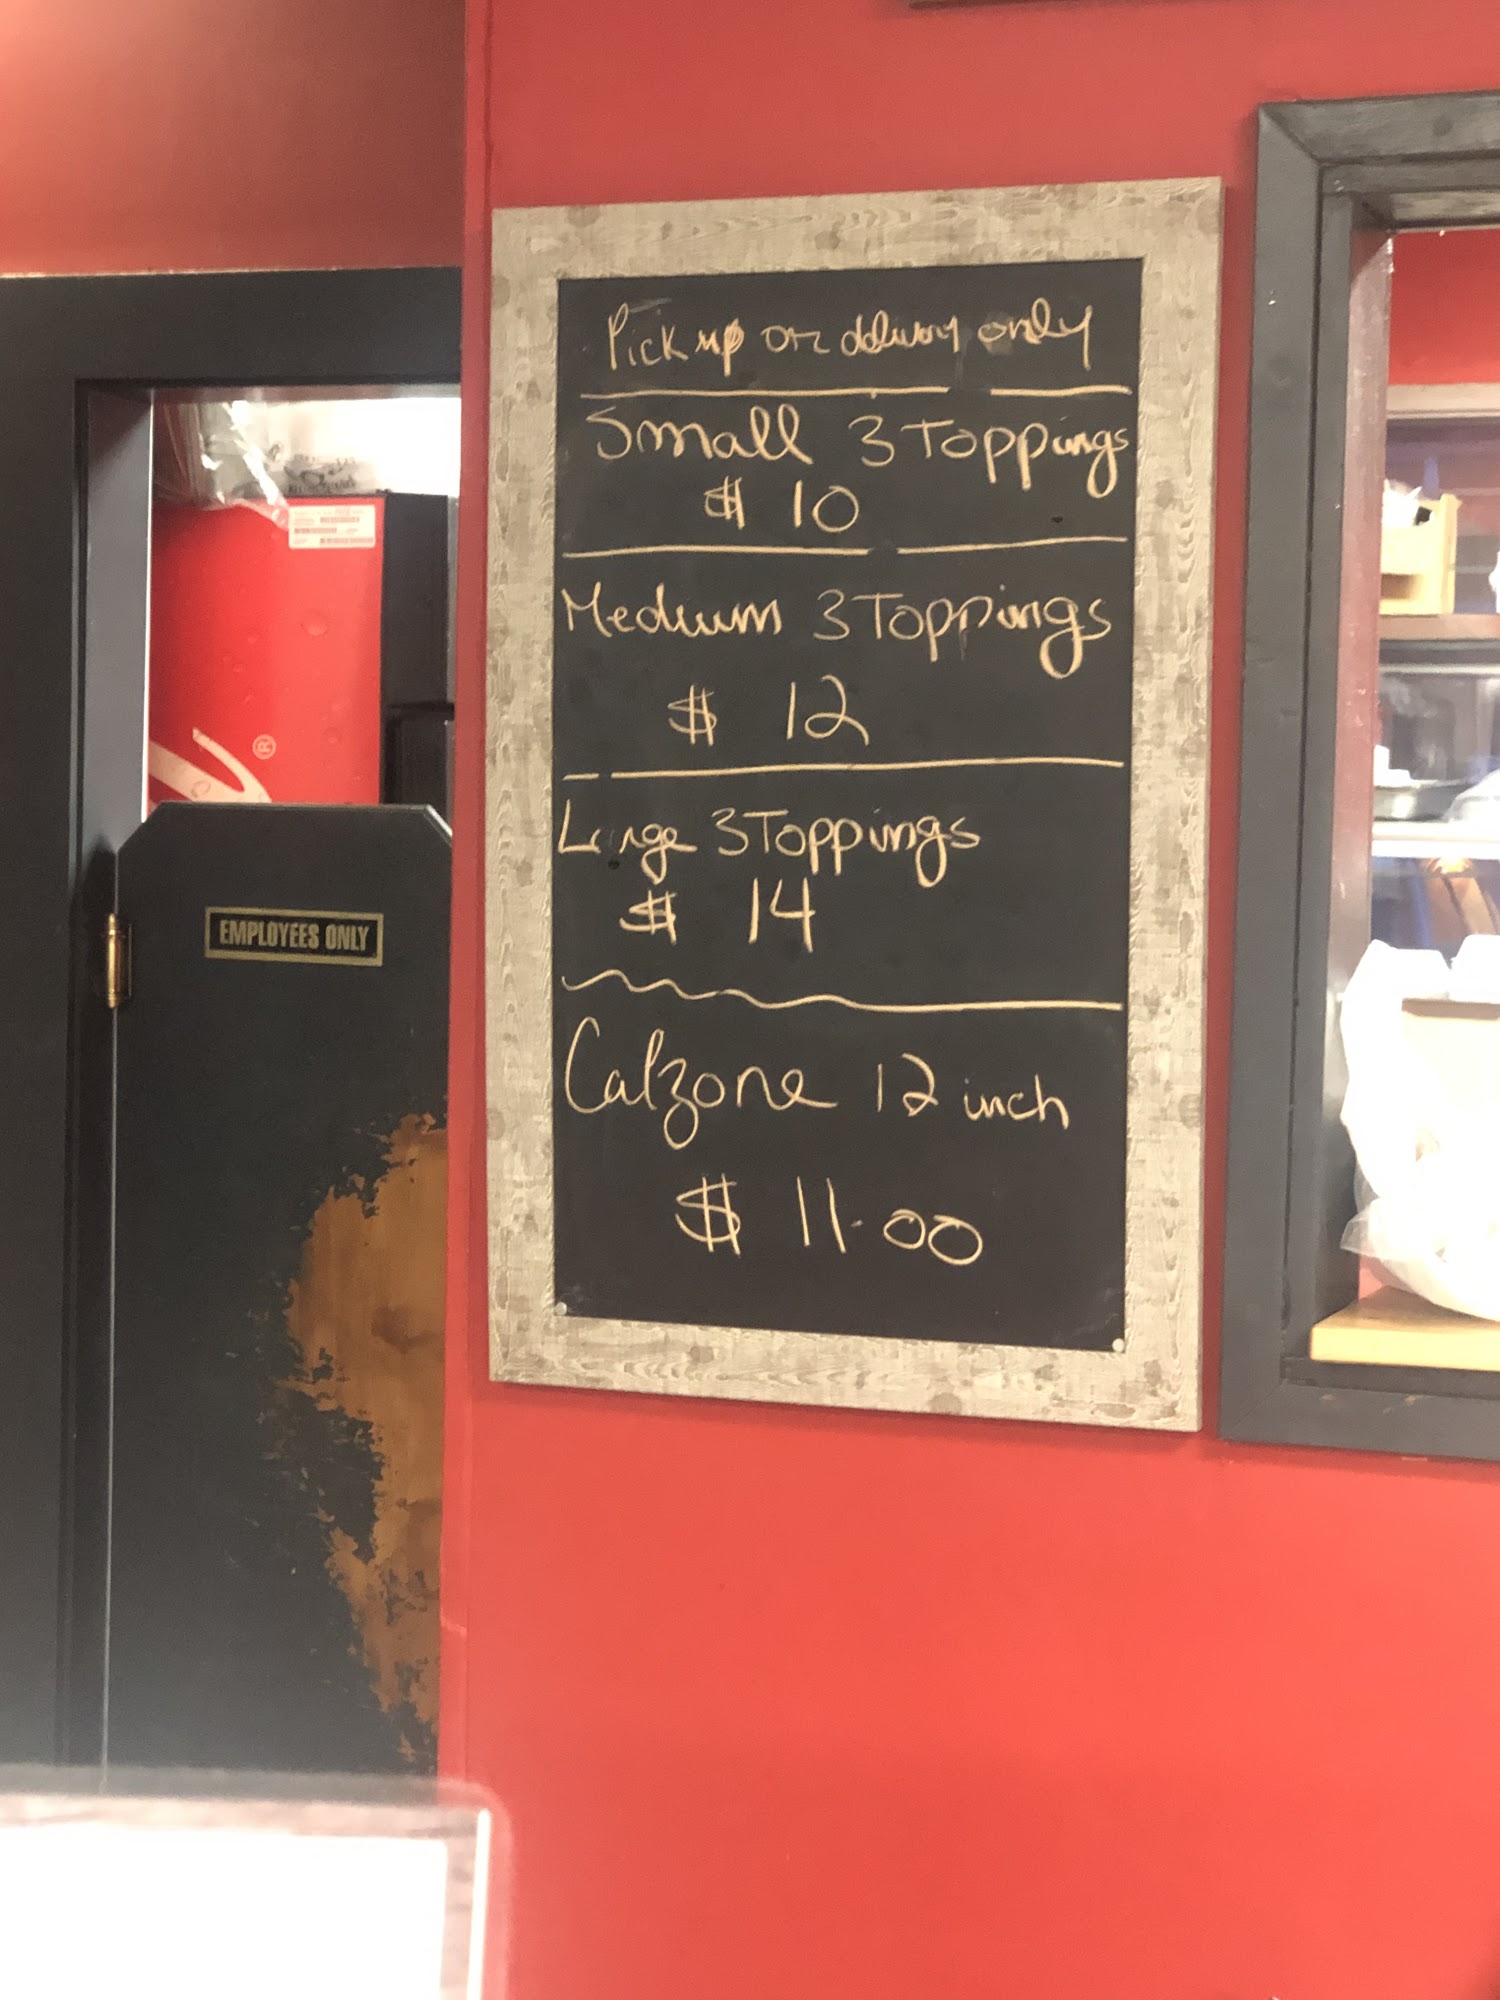 Pick up or delivery only
Small 3 Toppings
$ 10
Medium 3 Toppings
$ 12
Large 3 Toppings
$ 14
Calzone 12 inch
$ 11.00
EMPLOYEES ONLY
®